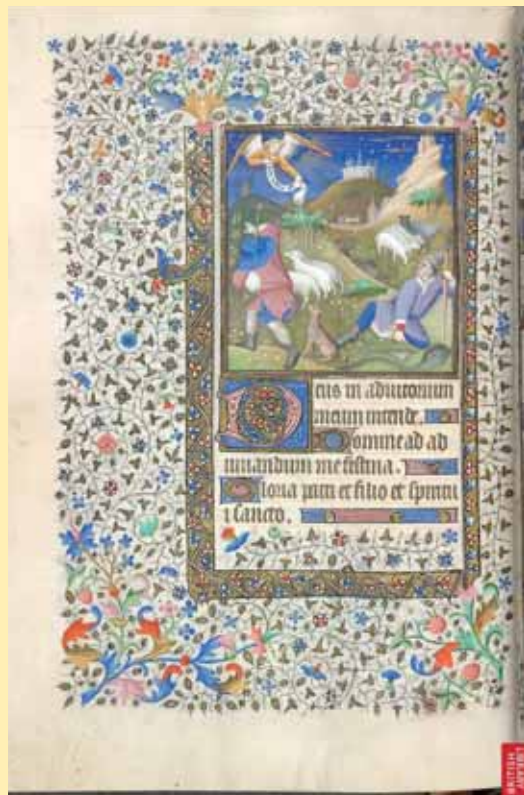 Deus in adiutorium
meum intende.
Domine ad ad
iuuandum me festina.
Gloria patri et filio et spiritu
i sancto.
BRITISH
LIBRARY